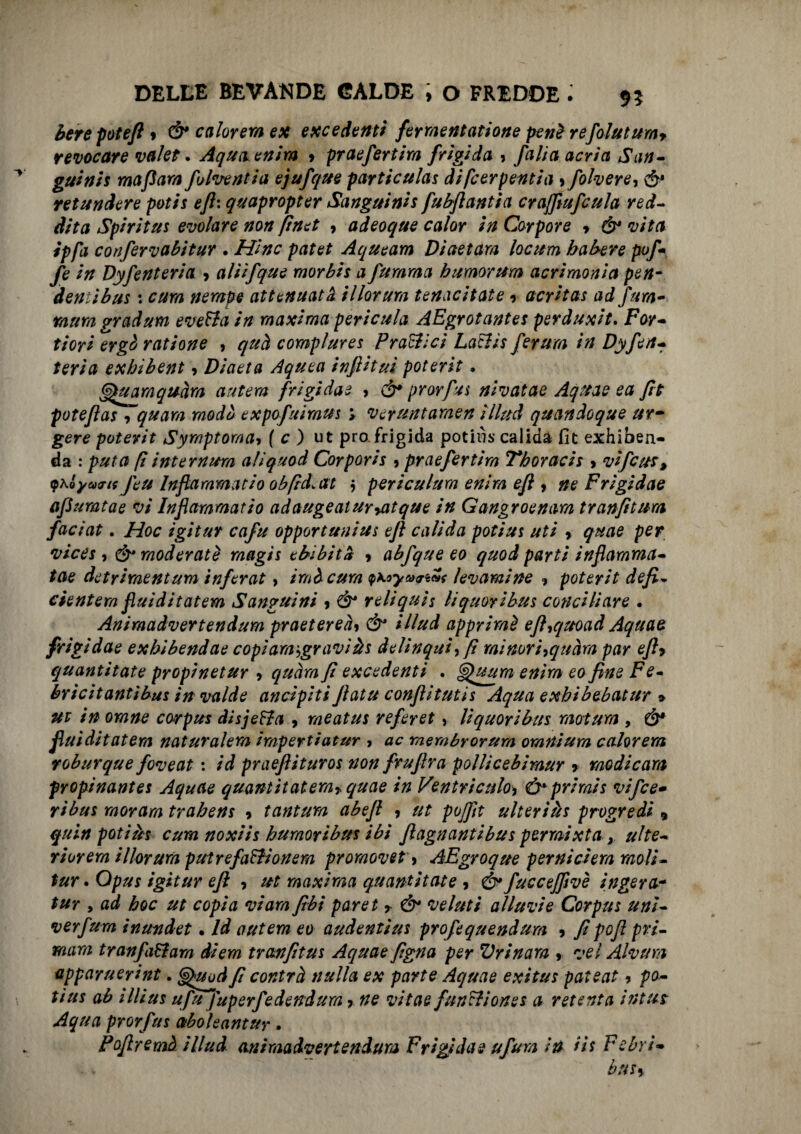 DELLE BEVANDE CALDE , O FREDDE . 93
bere poteſt , & calorem ex excedenti fermentatione penè reſolutum,
revocare valet . Aqua enim , praeſertim frigida , ſalia acria San-
guinis maſſam ſolventia ejuſque particulas diſcerpentia , ſolvere, &
retundere potis eſt: quapropter Sanguinis ſubſtantia craſſiuſcula red-
dita Spiritus evolare non ſinet , adeoque calor in Corpore , & vita
ipſa conſervabitur . Hinc patet Aqueam Diaetam locum habere poſ-
ſe in Dyſenteria , aliiſque morbis a ſumma humorum acrimonia pen-
dentibus : cum nempe attenuatâ illorum tenacitate , acritas ad ſum-
mum gradum evecta in maxima pericula AEgrotantes perduxit. For-
tiori ergò ratione , quà complures Practici Lactis ſerum in Dyſen-
teria exhibent , Diaeta Aquea inſtitui poterit .
Quamquàm autem frigidae , & prorſus nivatae Aquae ea ſit
poteſtas , quam modò expoſuimus ; veruntamen illud quandoque ur-
gere poterit Symptoma, ( c ) ut pro frigida potiùs calida ſit exhiben-
da : puta ſi internum aliquod Corporis , praeſertim Thoracis , viſcus,
φλόγωσις ſeu Inflammatio obſideat ; periculum enim eſt , ne Frigidae
aſſumtae vi Inflammatio adaugeatur,atque in Gangroenam tranſitum
faciat . Hoc igitur caſu opportunius eſt calida potius uti , quae per
vices , & moderatè magis ebibitâ , abſque eo quod parti inflamma-
tae detrimentum inferat , imò cum φλογώσεως levamine , poterit defi-
cientem fluiditatem Sanguini , & reliquis liquoribus conciliare .
Animadvertendum praetereà, & illud apprimè eſt,quoad Aquae
frigidae exhibendae copiam;graviùs delinqui, ſi minori,quàm par eſt,
quantitate propinetur , quàm ſi excedenti . Quum enim eo fine Fe-
bricitantibus in valde ancipiti ſtatu conſtitutis Aqua exhibebatur ,
ut in omne corpus disjecta , meatus referet , liquoribus motum , &
fluiditatem naturalem impertiatur , ac membrorum omnium calorem
roburque foveat : id praeſtituros non fruſtra pollicebimur , modicam
propinantes Aquae quantitatem, quae in Ventriculo, & primis viſce-
ribus moram trahens , tantum abeſt , ut poſſit ulteriùs progredi ,
quin potiùs cum noxiis humoribus ibi ſtagnantibus permixta , ulte-
riorem illorum putrefactionem promovet , AEgroque perniciem moli-
tur . Opus igitur eſt , ut maxima quantitate , & ſucceſſivè ingera-
tur , ad hoc ut copia viam ſibi paret , & veluti alluvie Corpus uni-
verſum inundet . Id autem eo audentius proſequendum , ſi poſt pri-
mam tranſactam diem tranſitus Aquae ſigna per Urinam , vel Alvum
apparuerint . Quod ſi contrà nulla ex parte Aquae exitus pateat , po-
tius ab illius uſu ſuperſedendum , ne vitae functiones a retenta intus
Aqua prorſus aboleantur .
Poſtremò illud animadvertendum Frigidae uſum in iis Febri-
bus,